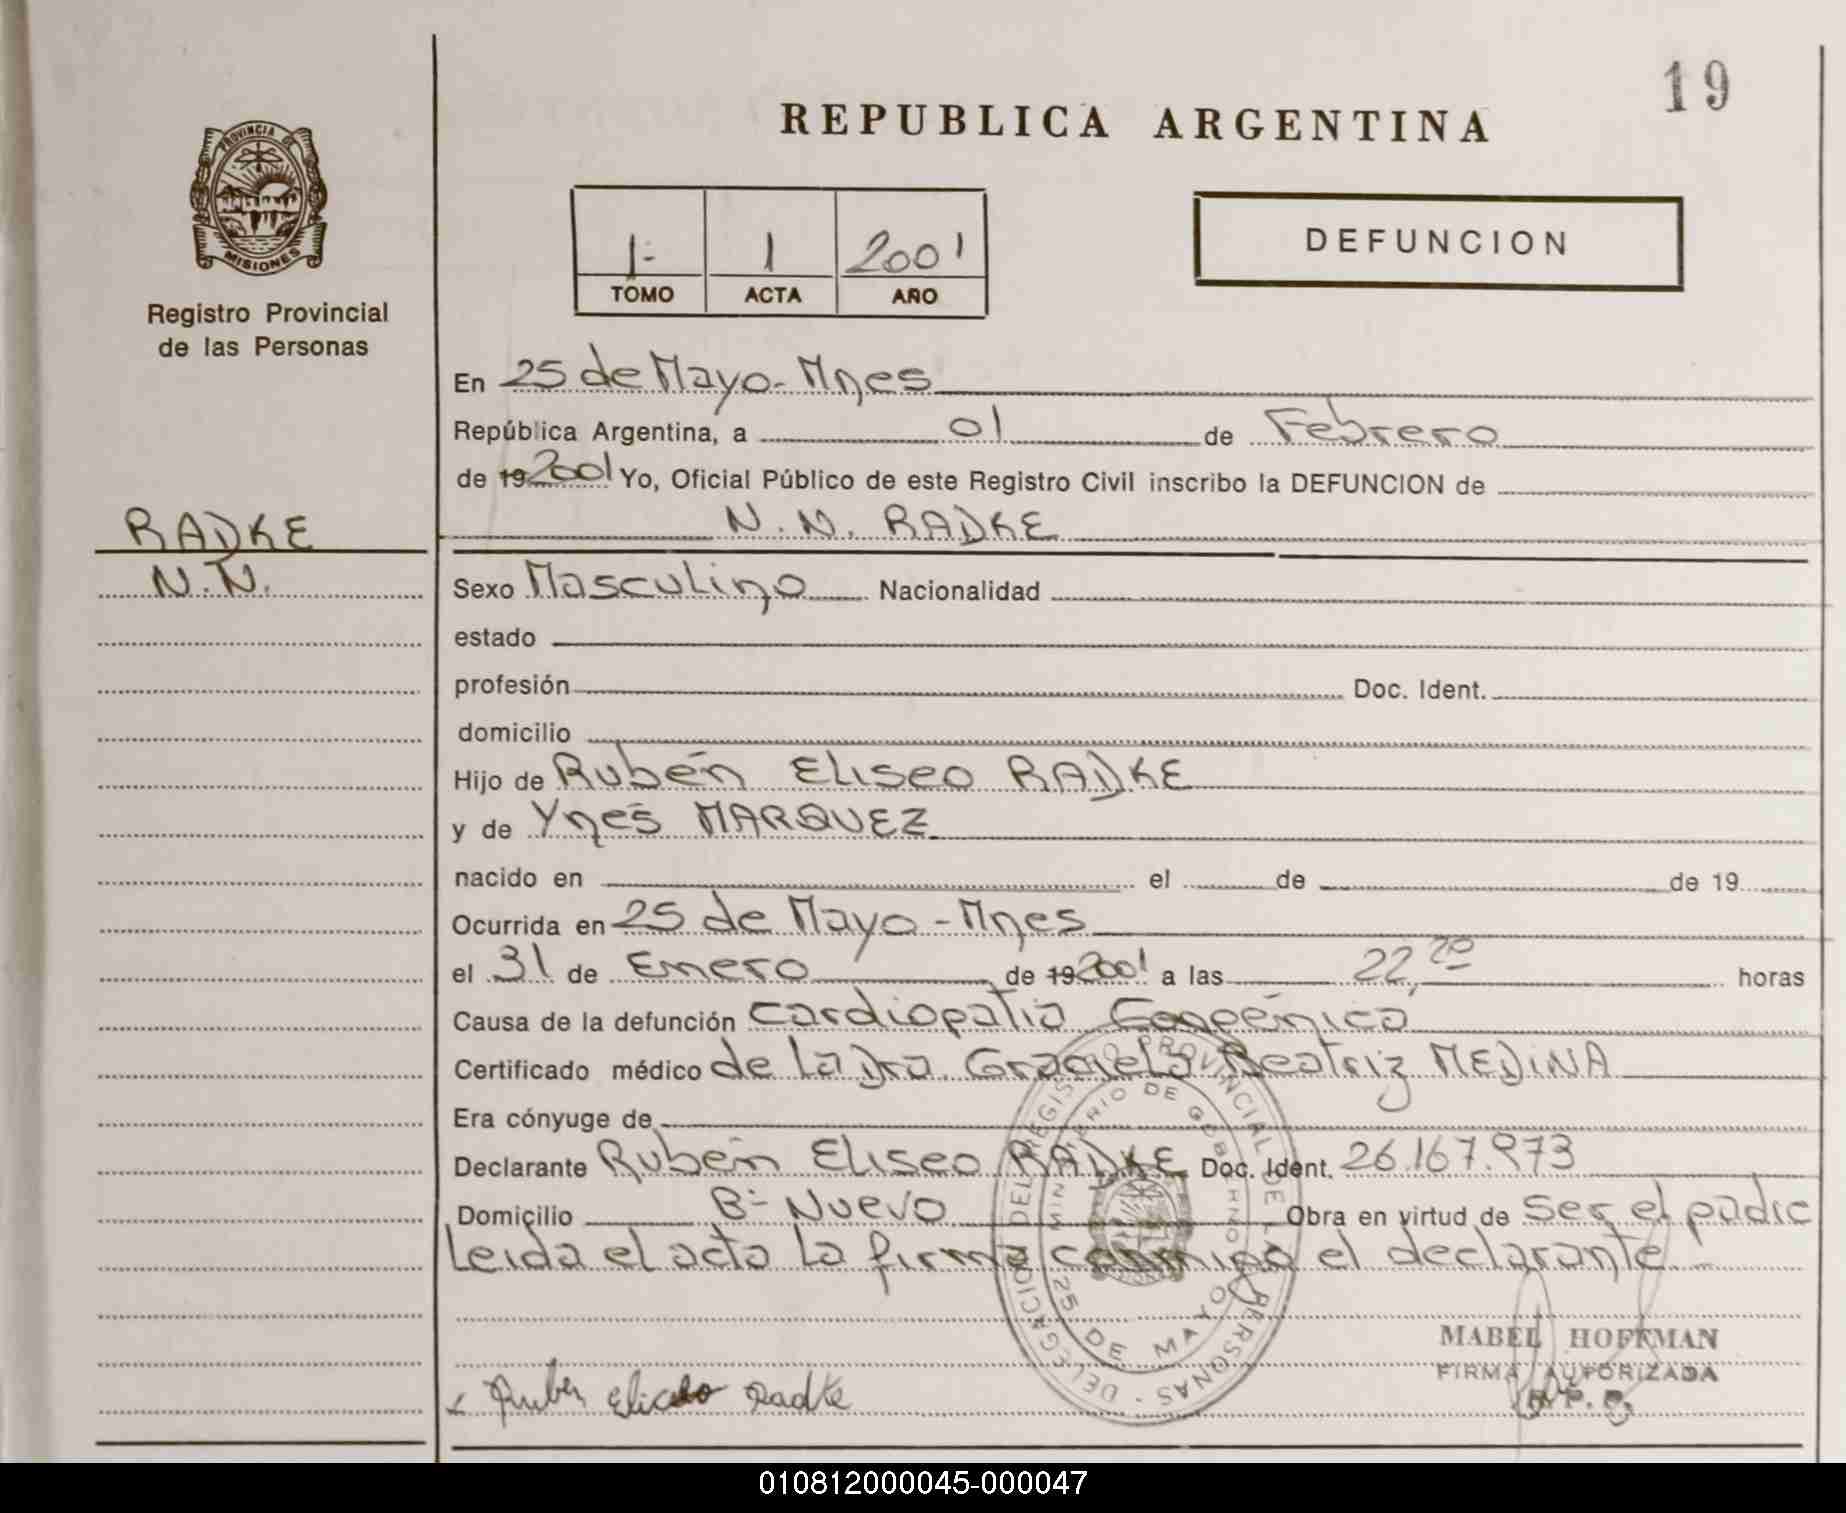 19
REPUBLICA ARGENTINA
PROVINCIA DE
MISIONES
Registro Provincial
de las Personas
1- 1 2001
TOMO ACTA AÑO
DEFUNCION
En 25 de Mayo-Mnes
República Argentina, a 01 de Febrero
de 19 2001 Yo, Oficial Público de este Registro Civil inscribo la DEFUNCION de
N.N. RADKE
RADKE
N.N.
Sexo Masculino Nacionalidad
estado
profesión Doc. Ident.
domicilio
Hijo de Rubén Eliseo RADKE
y de Ynés MARQUEZ
nacido en el de de 19
Ocurrida en 25 de Mayo-Mnes
el 31 de Enero de 19 2001 a las 22,20 horas
Causa de la defunción Cardiopatia
Certificado médico de La Dra. Graciela Beatriz MEDINA
Era cónyuge de
Declarante Rubén Eliseo RADKE Doc. Ident. 26.167.973
Domicilio Bº Nuevo Obra en virtud de ser el padre
Leida el acta la firma conmigo el declarante.-
DELEGACION DEL REGISTRO PROVINCIAL DE LAS PERSONAS
MINISTERIO DE GOBIERNO
25 DE MAYO
MABEL HOFFMAN
FIRMA AUTORIZADA
R.P.P.
Ruben Eliceo Radke
010812000045-000047